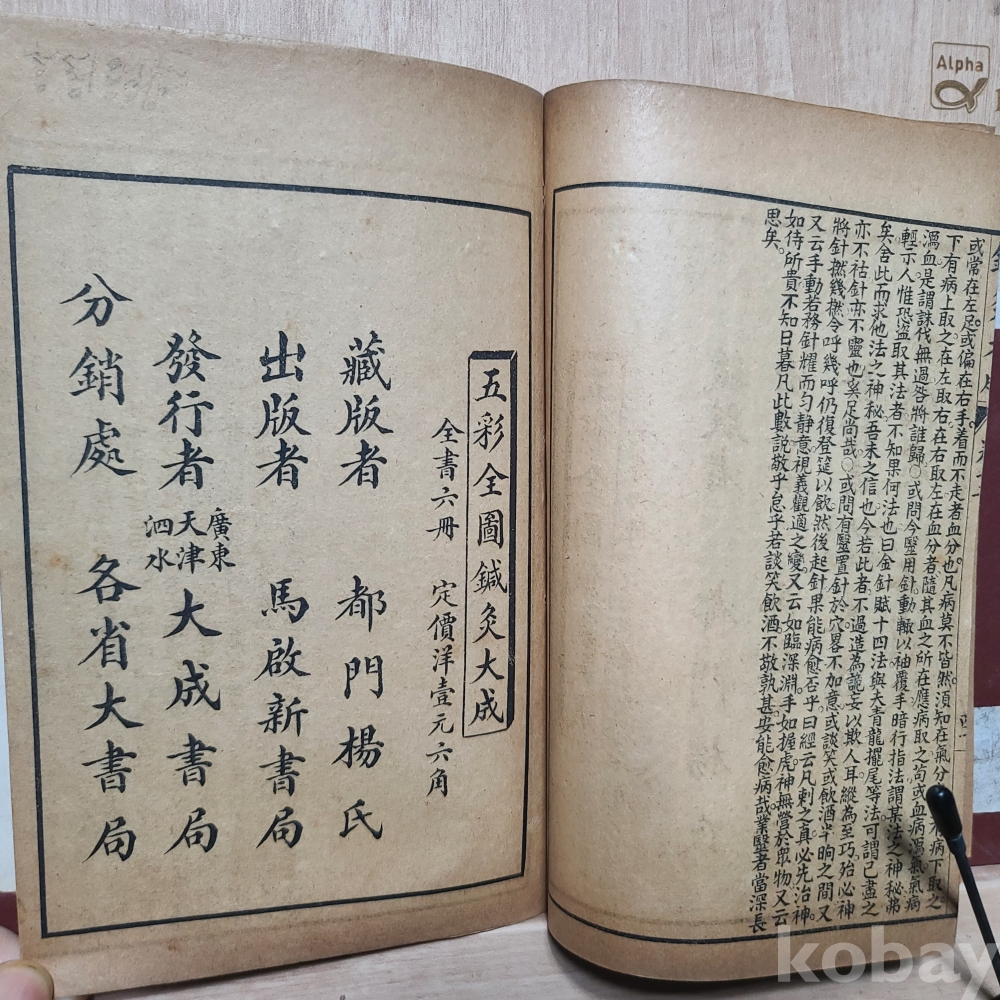 或常在左足或偏在右手着而不走者血分也凡病莫不皆然須知在氣分
下有病上取之在左取右在右取左在血分者隨其血之所在應病取之苟或血病瀉氣氣病
瀉血是謂誅伐無過咎將誰歸○或問今醫用針動輒以袖覆手暗行指法謂某法之神秘弗
輕示人惟恐盜取其法者不知果何法也曰金針賦十四法與夫青龍擺尾等法可謂已盡之
矣舍此而求他法之神秘吾未之信也今若此者不過造為詭妄以欺人耳縱為至巧殆必神
亦不祐針亦不靈也奚足尚哉○或問有醫置針於穴畧不加意或談笑或飲酒半晌之間又
將針撚幾撚令呼幾呼仍復登筵以飲然後起針果能病愈否乎曰經云凡刺之真必先治神
又云手動若務針耀而勻靜意視義觀適之變又云如臨深淵手如握虎神無營於眾物又云
如侍所貴不知日暮凡此數說敬乎怠乎若談笑飲酒不敬孰甚安能愈病哉業醫者當深長
思矣
五彩全圖鍼灸大成
全書六冊 定價洋壹元六角
藏版者 都門楊氏
出版者 馬啟新書局
發行者 廣東 天津 泗水 大成書局
分銷處 各省大書局
Alpha
kobay